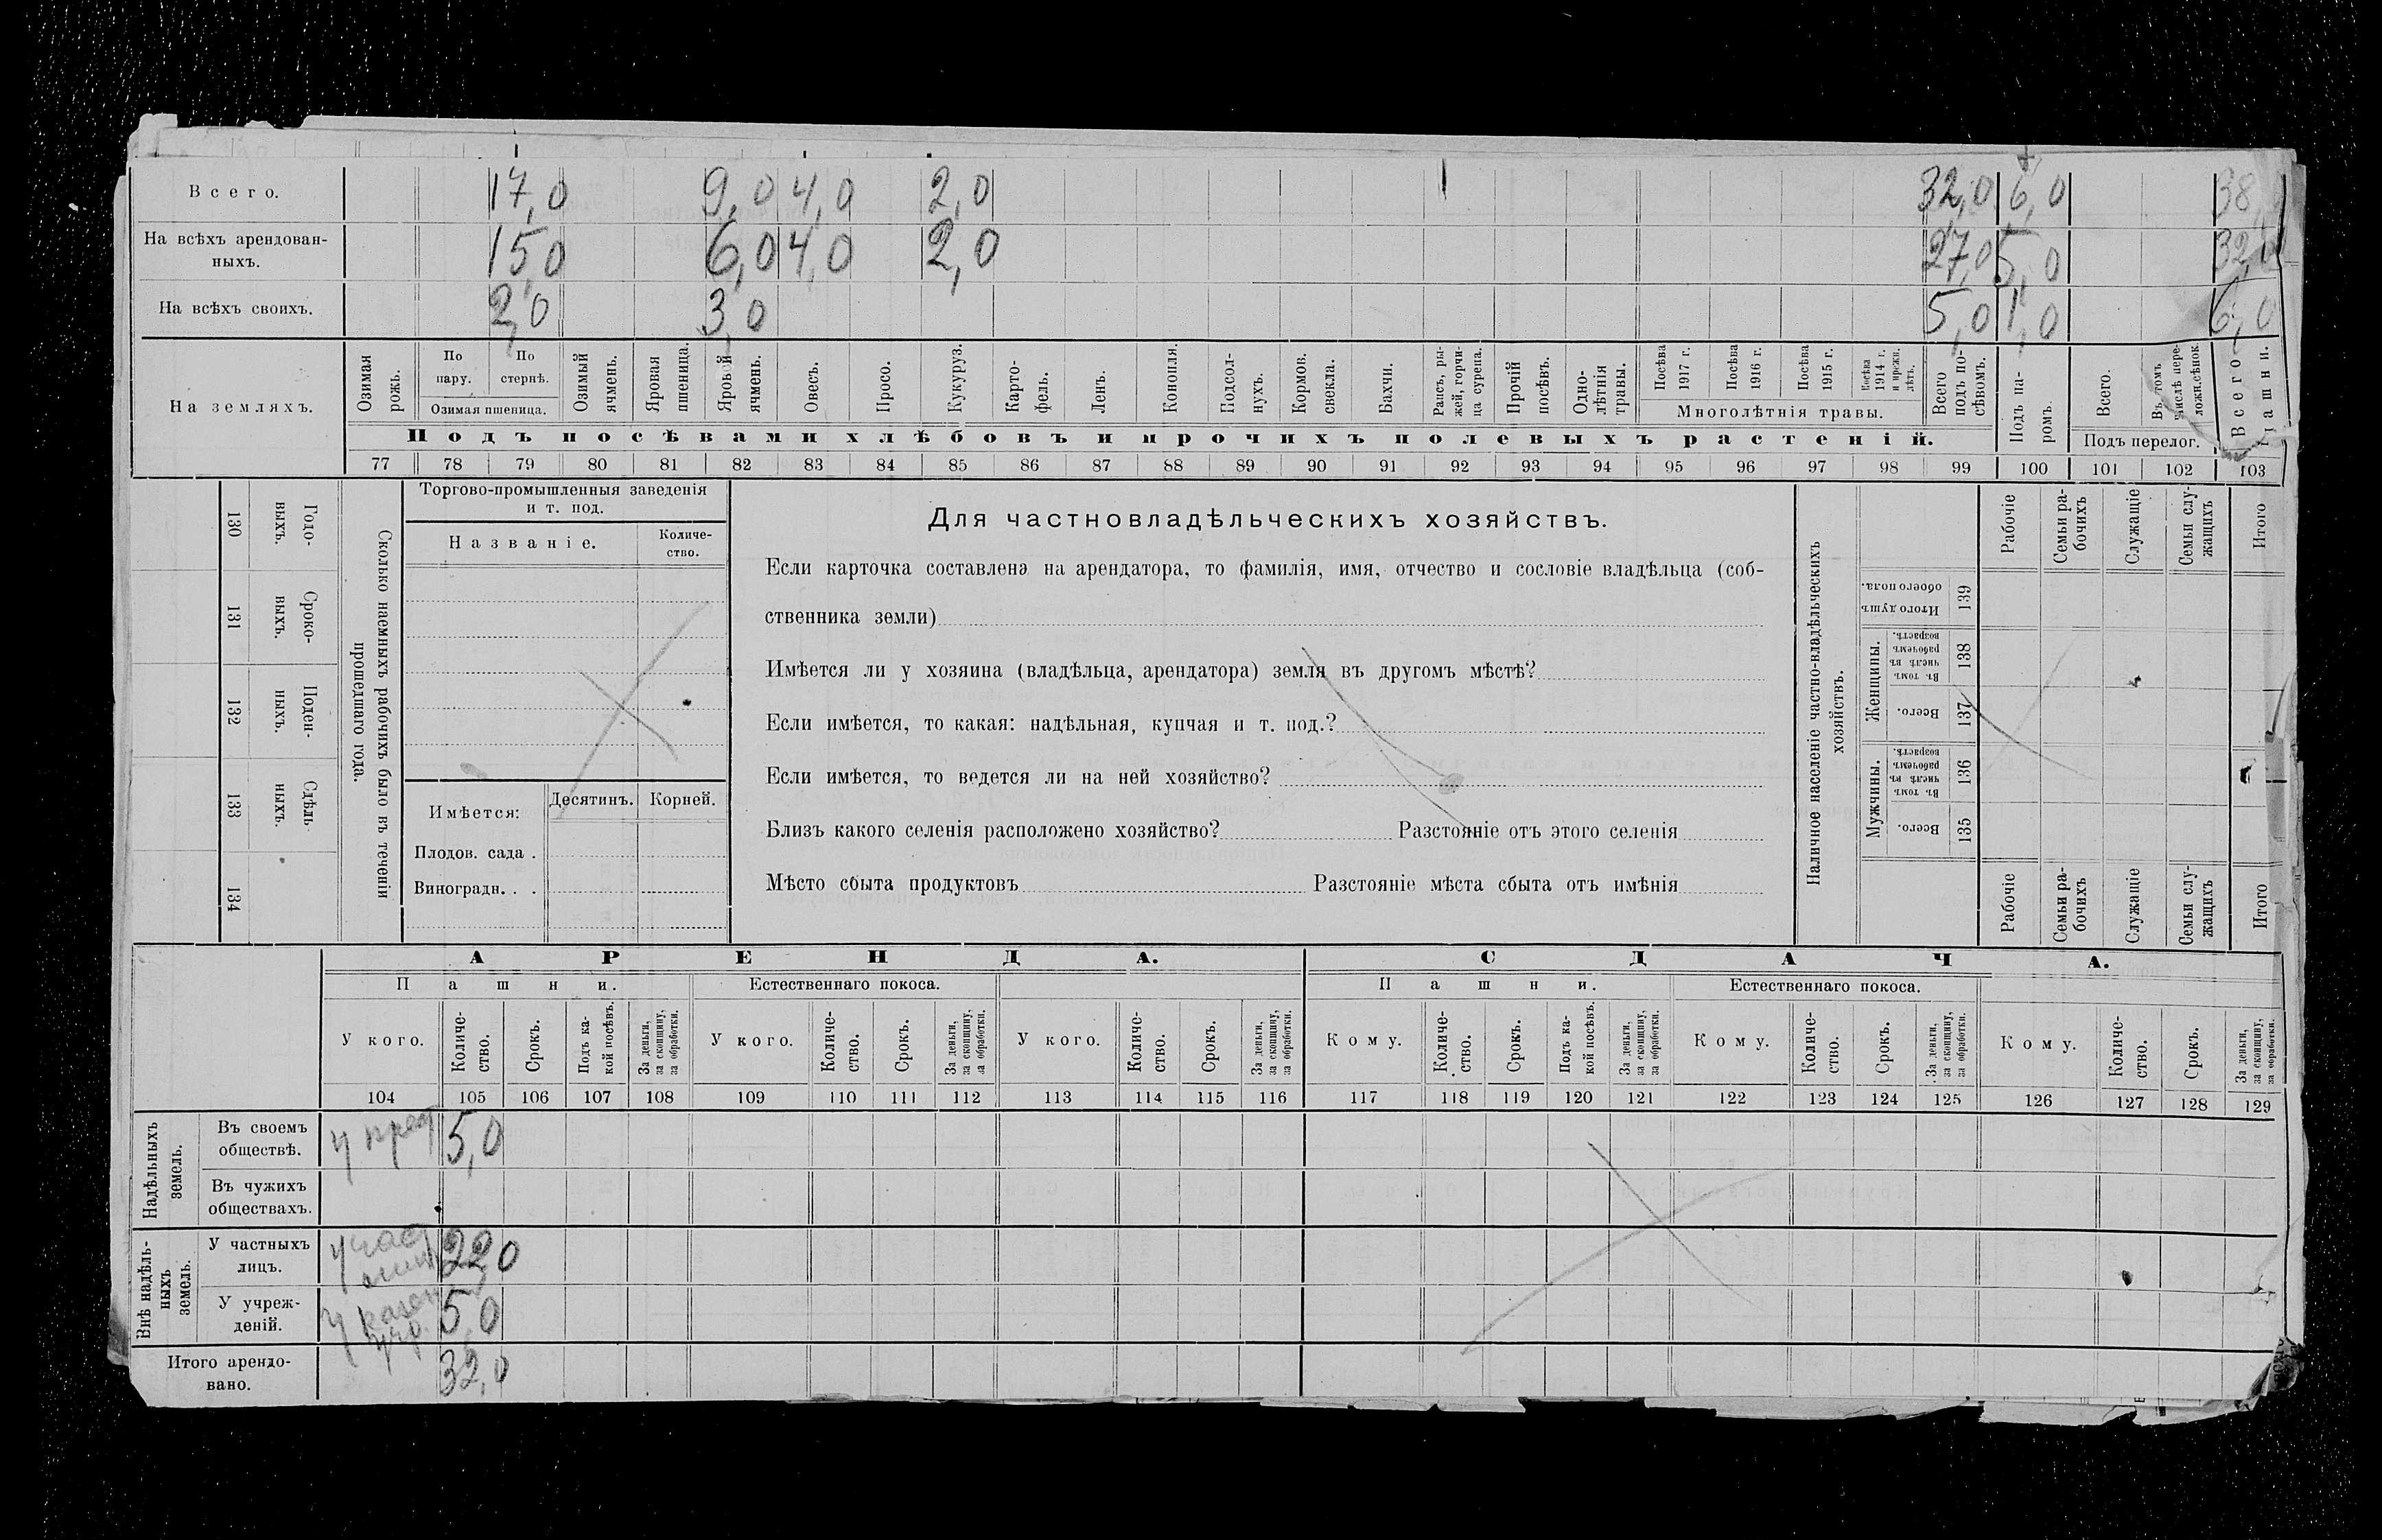 Всего. 17,0 9,0 4,0 2,0 32,0 6,0 38,
На всѣхъ арендован-
ныхъ. 15,0 6,0 4,0 2,0 27,0 5,0 32,0
На всѣхъ своихъ. 2,0 3,0 5,0 1,0 6,0
На земляхъ.
Озимая
рожь.
По
пару.
По
стернѣ.
Озимая пшеница.
Озимый
ячмень.
Яровая
пшеница.
Яровой
ячмень.
Овесъ.
Просо.
Кукуруз.
Карто-
фель.
Ленъ.
Конопля.
Подсол-
нухъ.
Кормов.
свекла.
Бахчи.
Рапсъ, ры-
жей, горчи-
ца сурепа.
Прочій
посѣвъ.
Одно-
лѣтнія
травы.
Посѣва
1917 г.
Посѣва
1916 г.
Посѣва
1915 г.
Посѣва
1914 г.
и прежн.
лѣтъ.
Многолѣтнія травы.
Всего
подъ по-
сѣвомъ.
Подъ па-
ромъ.
Всего.
Въ томъ
числѣ пере-
лож.сѣнок.
Подъ перелог.
Всего
пашни.
Подъ посѣвами хлѣбовъ и прочихъ полевыхъ растеній.
77 78 79 80 81 82 83 84 85 86 87 88 89 90 91 92 93 94 95 96 97 98 99 100 101 102 103
Годо-
выхъ.
130
Сроко-
выхъ.
131
Поден-
ныхъ.
132
Сдѣль-
ныхъ.
133
134
Сколько наемныхъ рабочихъ было въ теченіи
прошедшаго года.
Торгово-промышленныя заведенія
и т. под.
Названіе.
Количе-
ство.
Имѣется:
Десятинъ. Корней.
Плодов. сада .
Виноградн. . .
Для частновладѣльческихъ хозяйствъ.
Если карточка составлена на арендатора, то фамилія, имя, отчество и сословіе владѣльца (соб-
ственника земли)
Имѣется ли у хозяина (владѣльца, арендатора) земля въ другомъ мѣстѣ?
Если имѣется, то какая: надѣльная, купчая и т. под.?
Если имѣется, то ведется ли на ней хозяйство?
Близъ какого селенія расположено хозяйство? Разстояніе отъ этого селенія
Мѣсто сбыта продуктовъ Разстояніе мѣста сбыта отъ имѣнія
Наличное населеніе частно-владѣльческихъ
хозяйствъ.
Итого душъ
обоего пола.
139
Женщины.
Въ томъ
числѣ въ
рабочемъ
возрастѣ.
138
Всего.
137
Мужчины.
Въ томъ
числѣ въ
рабочемъ
возрастѣ.
136
Всего.
135
Рабочіе
Семьи ра-
бочихъ
Служащіе
Семьи слу-
жащихъ
Итого
Рабочіе
Семьи ра-
бочихъ
Служащіе
Семьи слу-
жащихъ
Итого
АРЕНДА. СДАЧА.
Пашни. Естественнаго покоса. Пашни. Естественнаго покоса.
У кого.
Количе-
ство.
Срокъ.
Подъ ка-
кой посѣвъ.
За деньги,
за скопщину,
за обработки.
У кого.
Количе-
ство.
Срокъ.
За деньги,
за скопщину,
за обработки.
У кого.
Количе-
ство.
Срокъ.
За деньги,
за скопщину,
за обработки.
Кому.
Количе-
ство.
Срокъ.
Подъ ка-
кой посѣвъ.
За деньги,
за скопщину,
за обработки.
Кому.
Количе-
ство.
Срокъ.
За деньги,
за скопщину,
за обработки.
Кому.
Количе-
ство.
Срокъ.
За деньги,
за скопщину,
за обработки.
104 105 106 107 108 109 110 111 112 113 114 115 116 117 118 119 120 121 122 123 124 125 126 127 128 129
Надѣльныхъ
земель.
Въ своемъ
обществѣ. у 5,0
Въ чужихъ
обществахъ.
Внѣ надѣль-
ныхъ
земель.
У частныхъ
лицъ. у час 22,0
У учреж-
деній. у 5,0
Итого арендо-
вано. 32,0